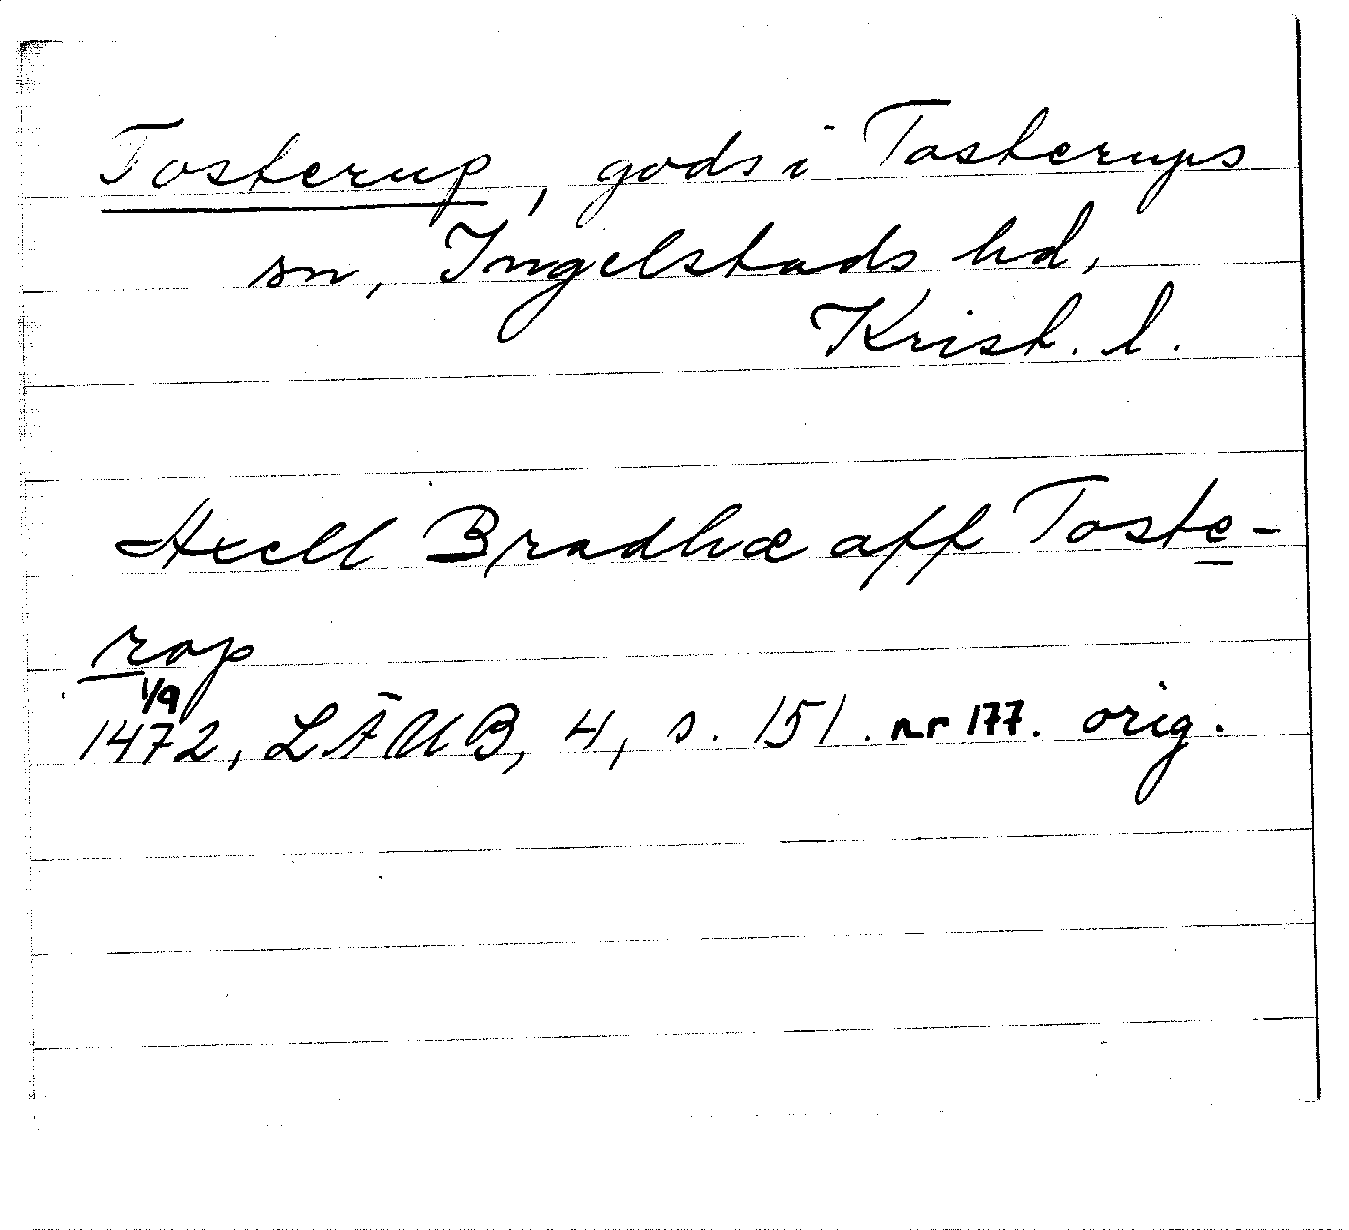 Tosterup, gods i Tosterups
sn, Ingelstads hd,
Krist. l.
Axell Bradhæ aff Toste-
rop
1/9
1472, LÄUB, 4, s. 151. nr 177. orig.